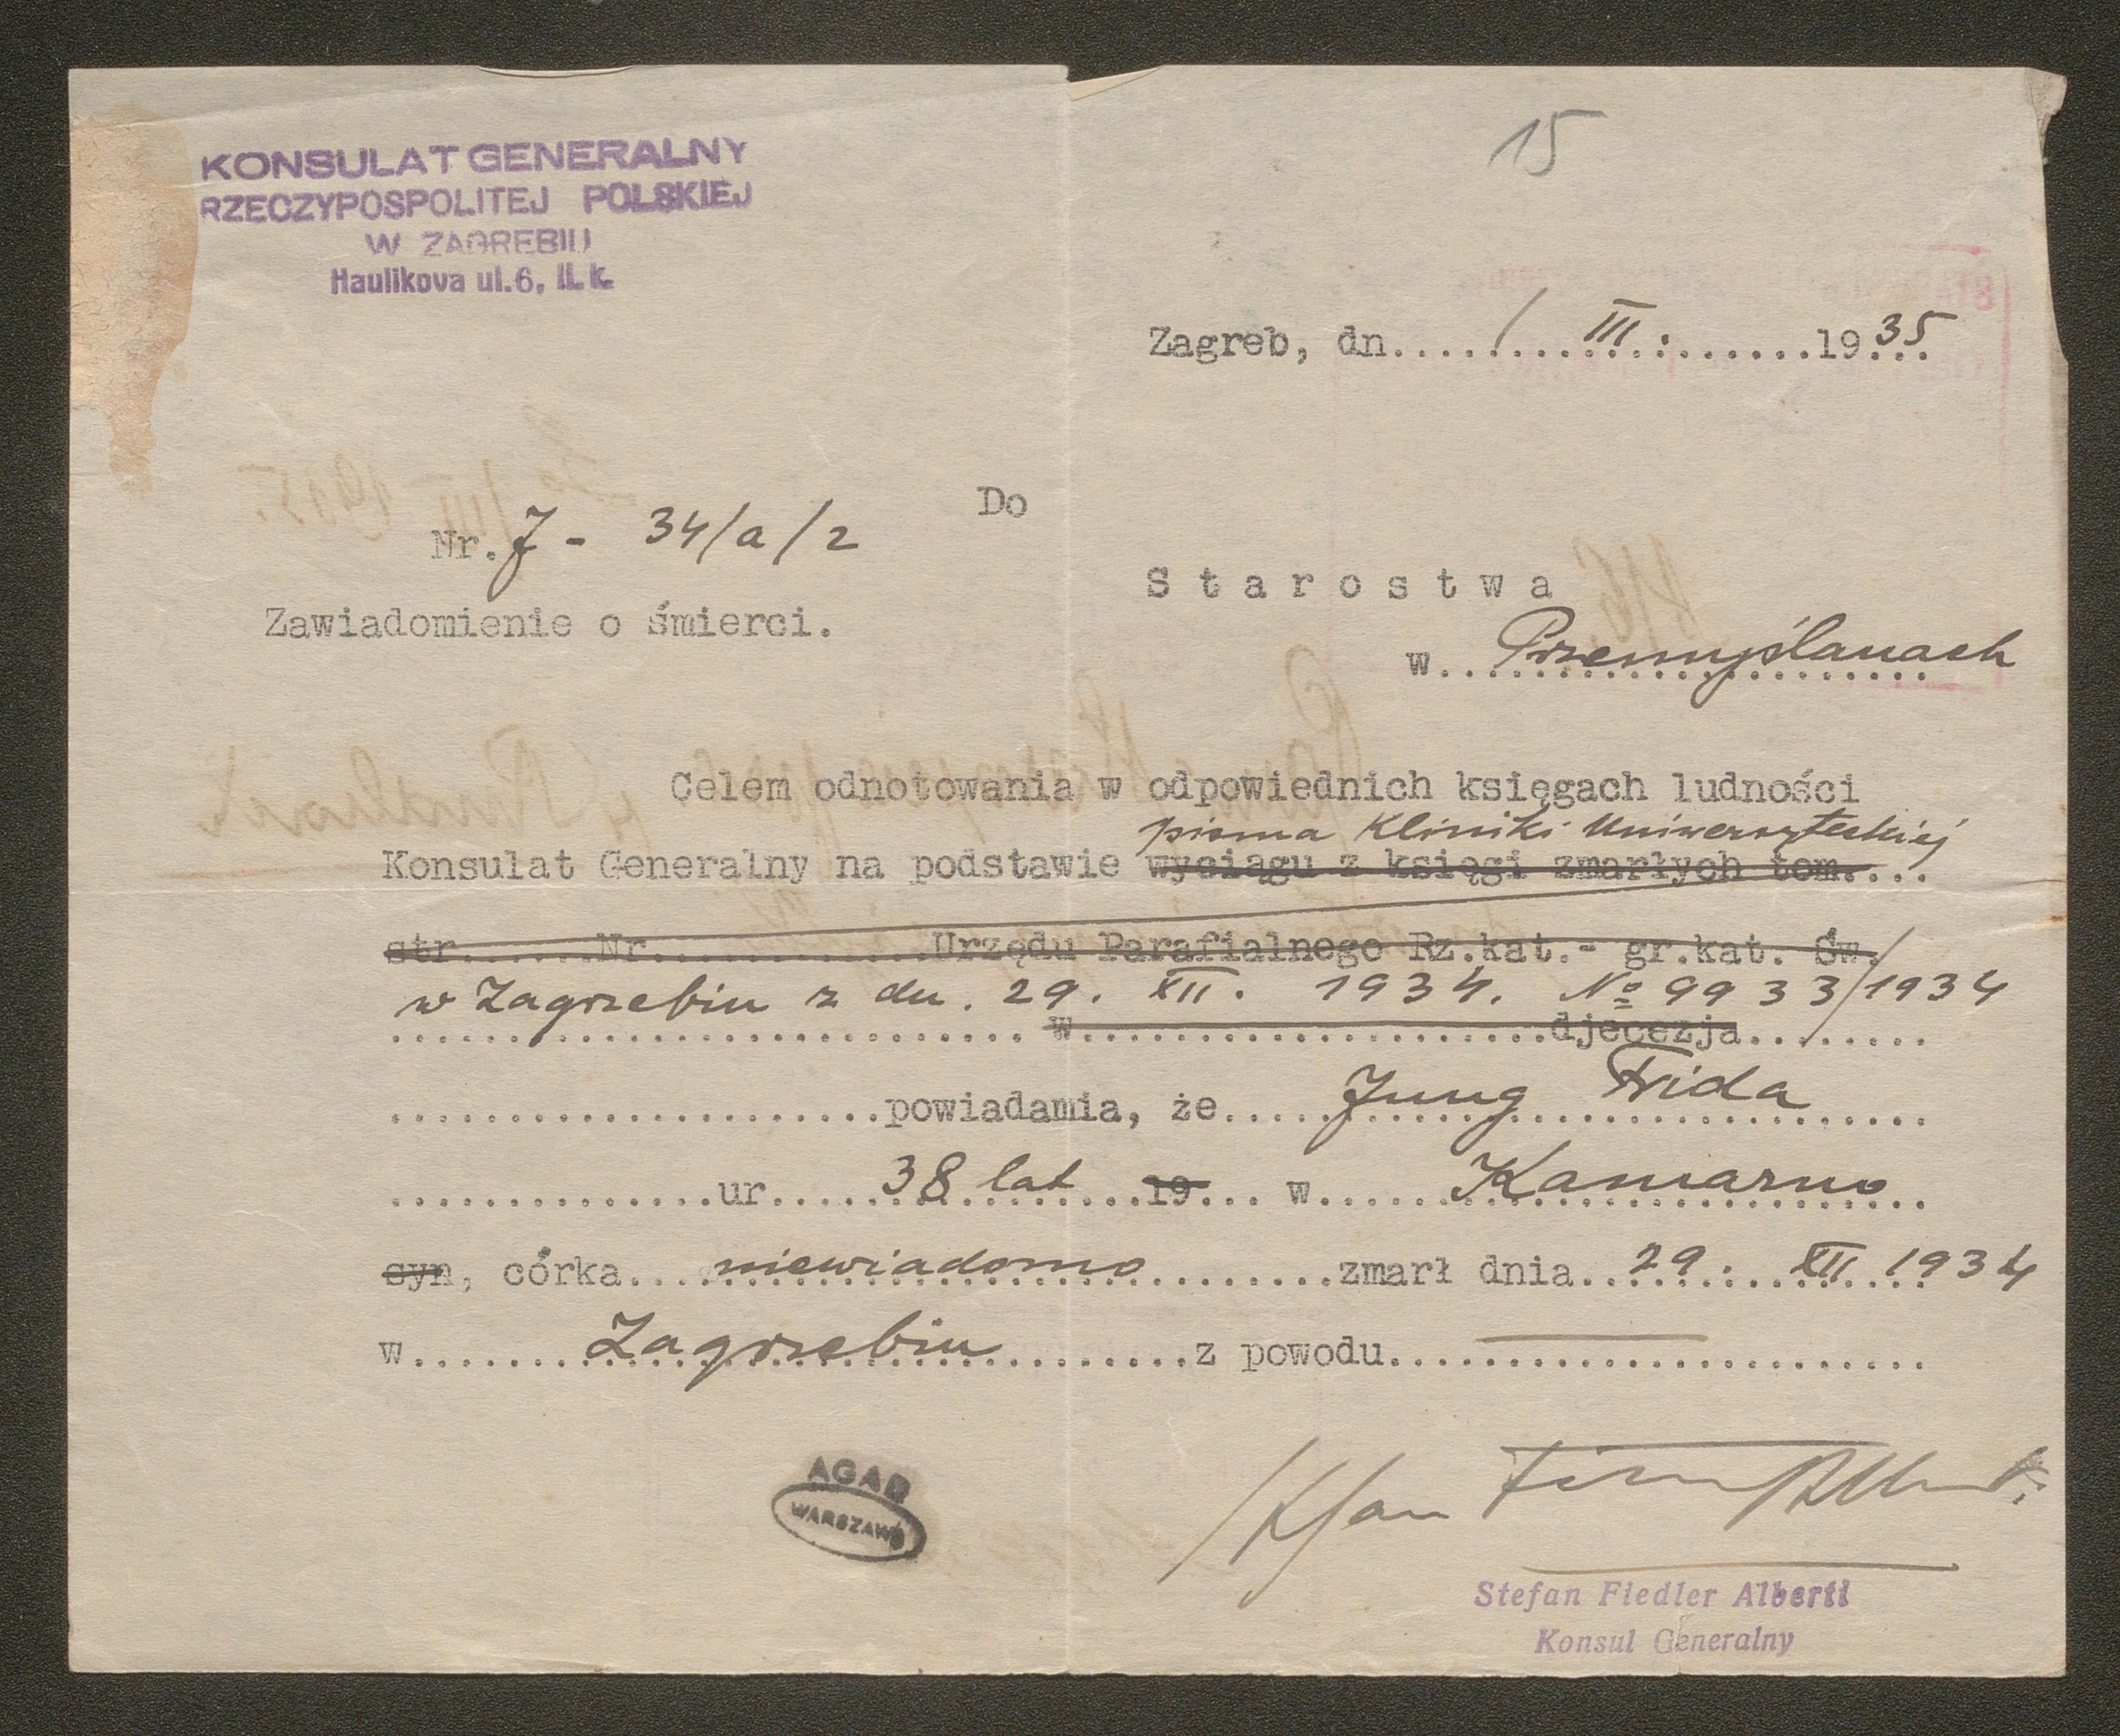 KONSULAT GENERALNY
RZECZYPOSPOLITEJ POLSKIEJ
W ZAGREBIU
Haulikova ul.6, II. k.
15
Zagreb, dn. 1 III. 1935
Nr. J - 34/a/2
Do
Zawiadomienie o śmierci.
Starostwa
w Przemyślanach
Celem odnotowania w odpowiednich księgach ludności
pisma Kliniki Uniwersyteckiej
Konsulat Generalny na podstawie wyciągu z księgi zmarłych tom....
str......Nr..............Urzędu Parafialnego Rz.kat.- gr.kat. Św.
w Zagrzebiu z dn. 29. XII. 1934. No 9933/1934
w....................djecezja........
powiadamia, że Jung Frida
ur 38 lat 19... w Kamarno
syn, córka niewiadomo zmarł dnia 29. XII 1934
w Zagrzebiu z powodu —
AGAD
WARSZAWA
Stefan Fiedler Alberti
Konsul Generalny